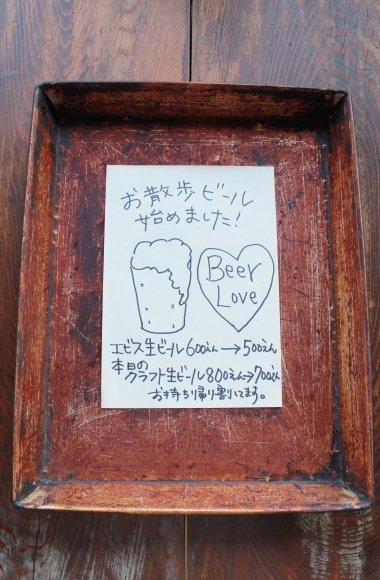 お散歩ビール
始めました!
Beer
Love
エビス生ビール600えん→500えん
本日の
クラフト生ビール800えん→700えん
お持ち帰り割いてます。